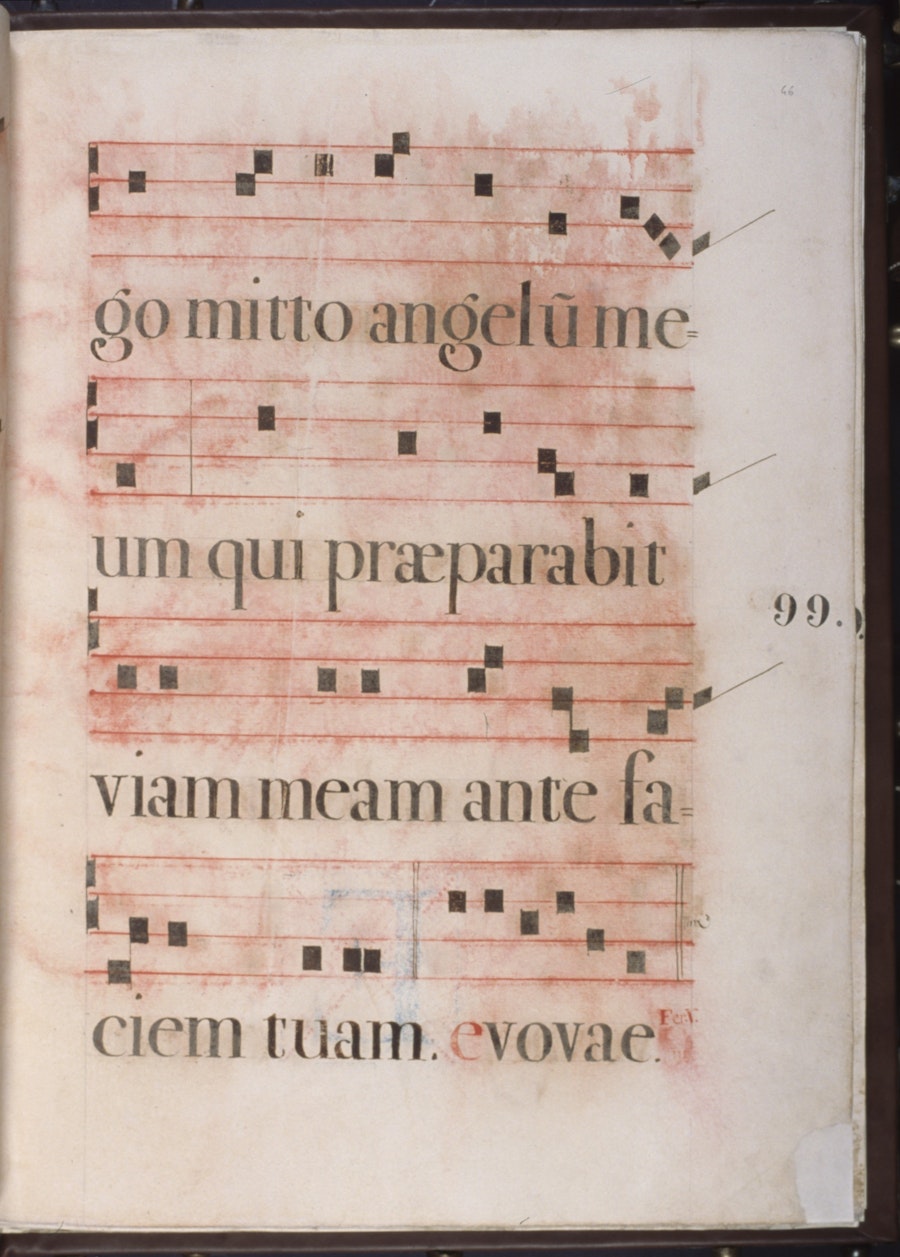 66
go mitto angelũ me=
um qui præparabit
99.
viam meam ante fa=
ciem tuam. evovae.
Fer. V.